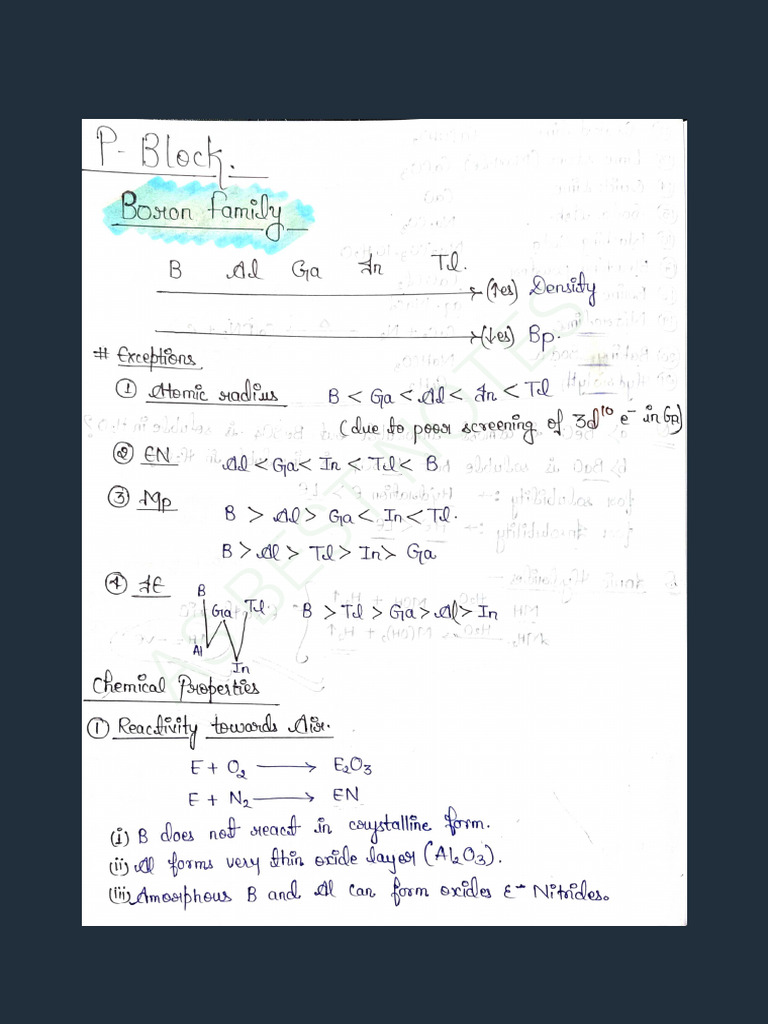 P-Block.
Boron family
B Al Ga In Tl.
(↑es) Density
(↓es) Bp.
# Exceptions
① Atomic radius B < Ga < Al < In < Tl
(due to poor screening of 3d¹⁰ e⁻ in Ga)
② EN Al < Ga < In < Tl < B
③ Mp B > Al > Ga < In < Tl.
B > Al > Tl > In > Ga
④ IE B > Tl > Ga > Al > In
B Ga Tl.
Al In
Chemical Properties
① Reactivity towards Air.
E + O₂ → E₂O₃
E + N₂ → EN
(i) B does not react in crystalline form.
(ii) Al forms very thin oxide layer (Al₂O₃).
(iii) Amorphous B and Al can form oxides & Nitrides.